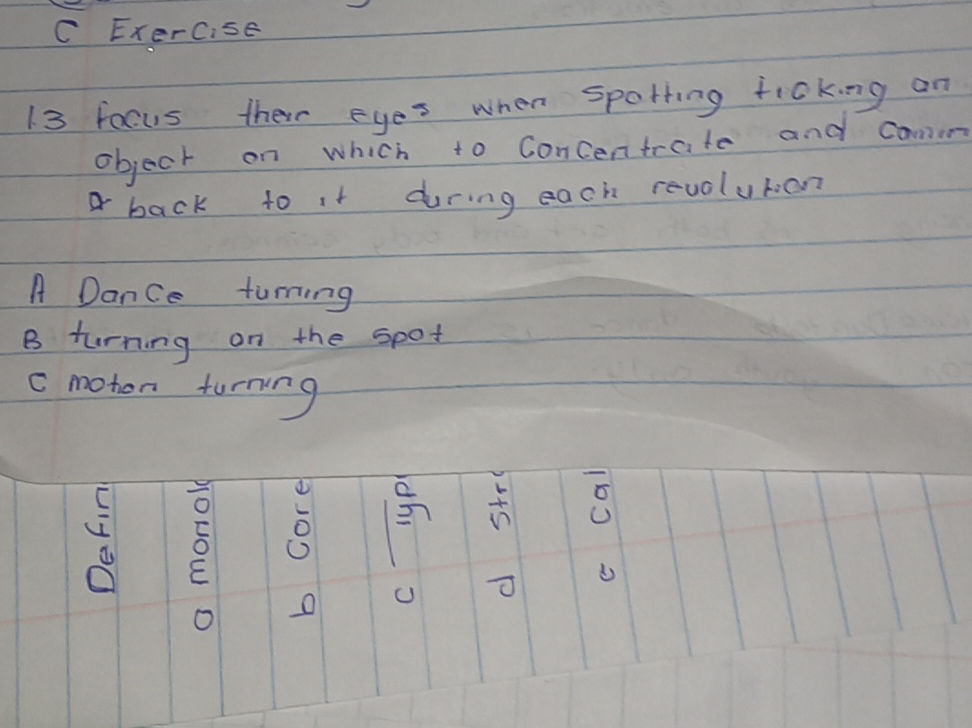 C Exercise
13 Focus their eyes when spotting ticking an
object on which to Concentrate and
back to it during each revolution
A Dance turning
B turning on the spot
C motion turning
Defin
a monolo
b Core
c Typ
d Stre
e Cal